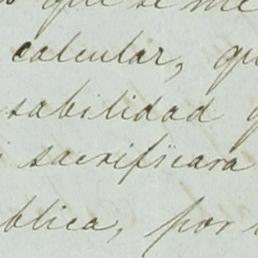 que se me
calcular, qu
sabilidad q
sacrificara
blica, por